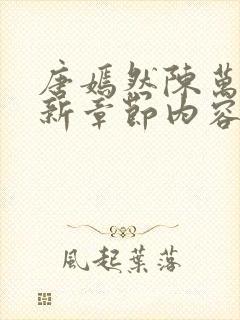 唐嫣然陳萬
新章節内容
風起葉落